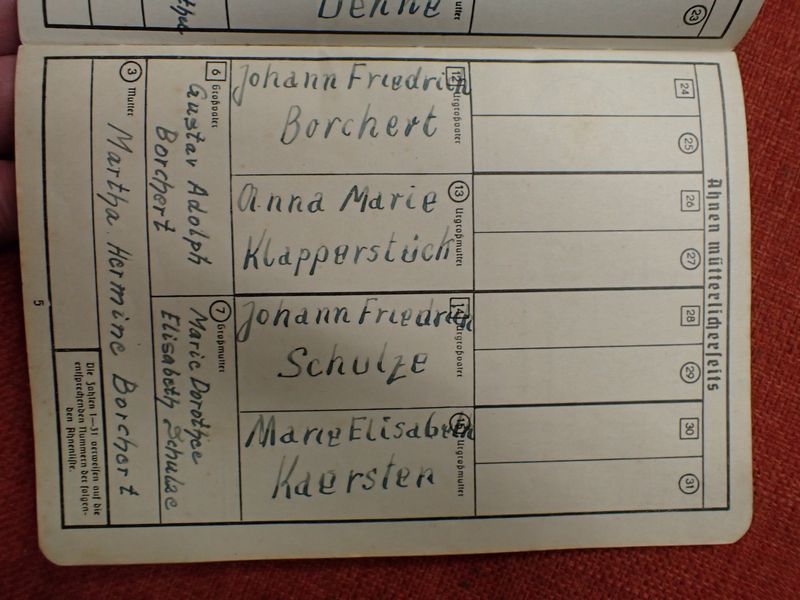 Denne
23
Ahnen mütterlicherseits
24
25
26
27
28
29
30
31
12 Urgroßvater
Johann Friedrich
Borchert
13 Urgroßmutter
Anna Marie
Klapperstück
14 Urgroßvater
Johann Friedrich
Schulze
15 Urgroßmutter
Marie Elisabeth
Kaersten
6 Großvater
Gustav Adolph
Borchert
7 Großmutter
Marie Dorothee
Elisabeth Schulze
3 Mutter
Martha Hermine Borchert
Die Zahlen 1—31 verweisen auf die
entsprechenden Nummern der folgen-
den Ahnenliste.
5